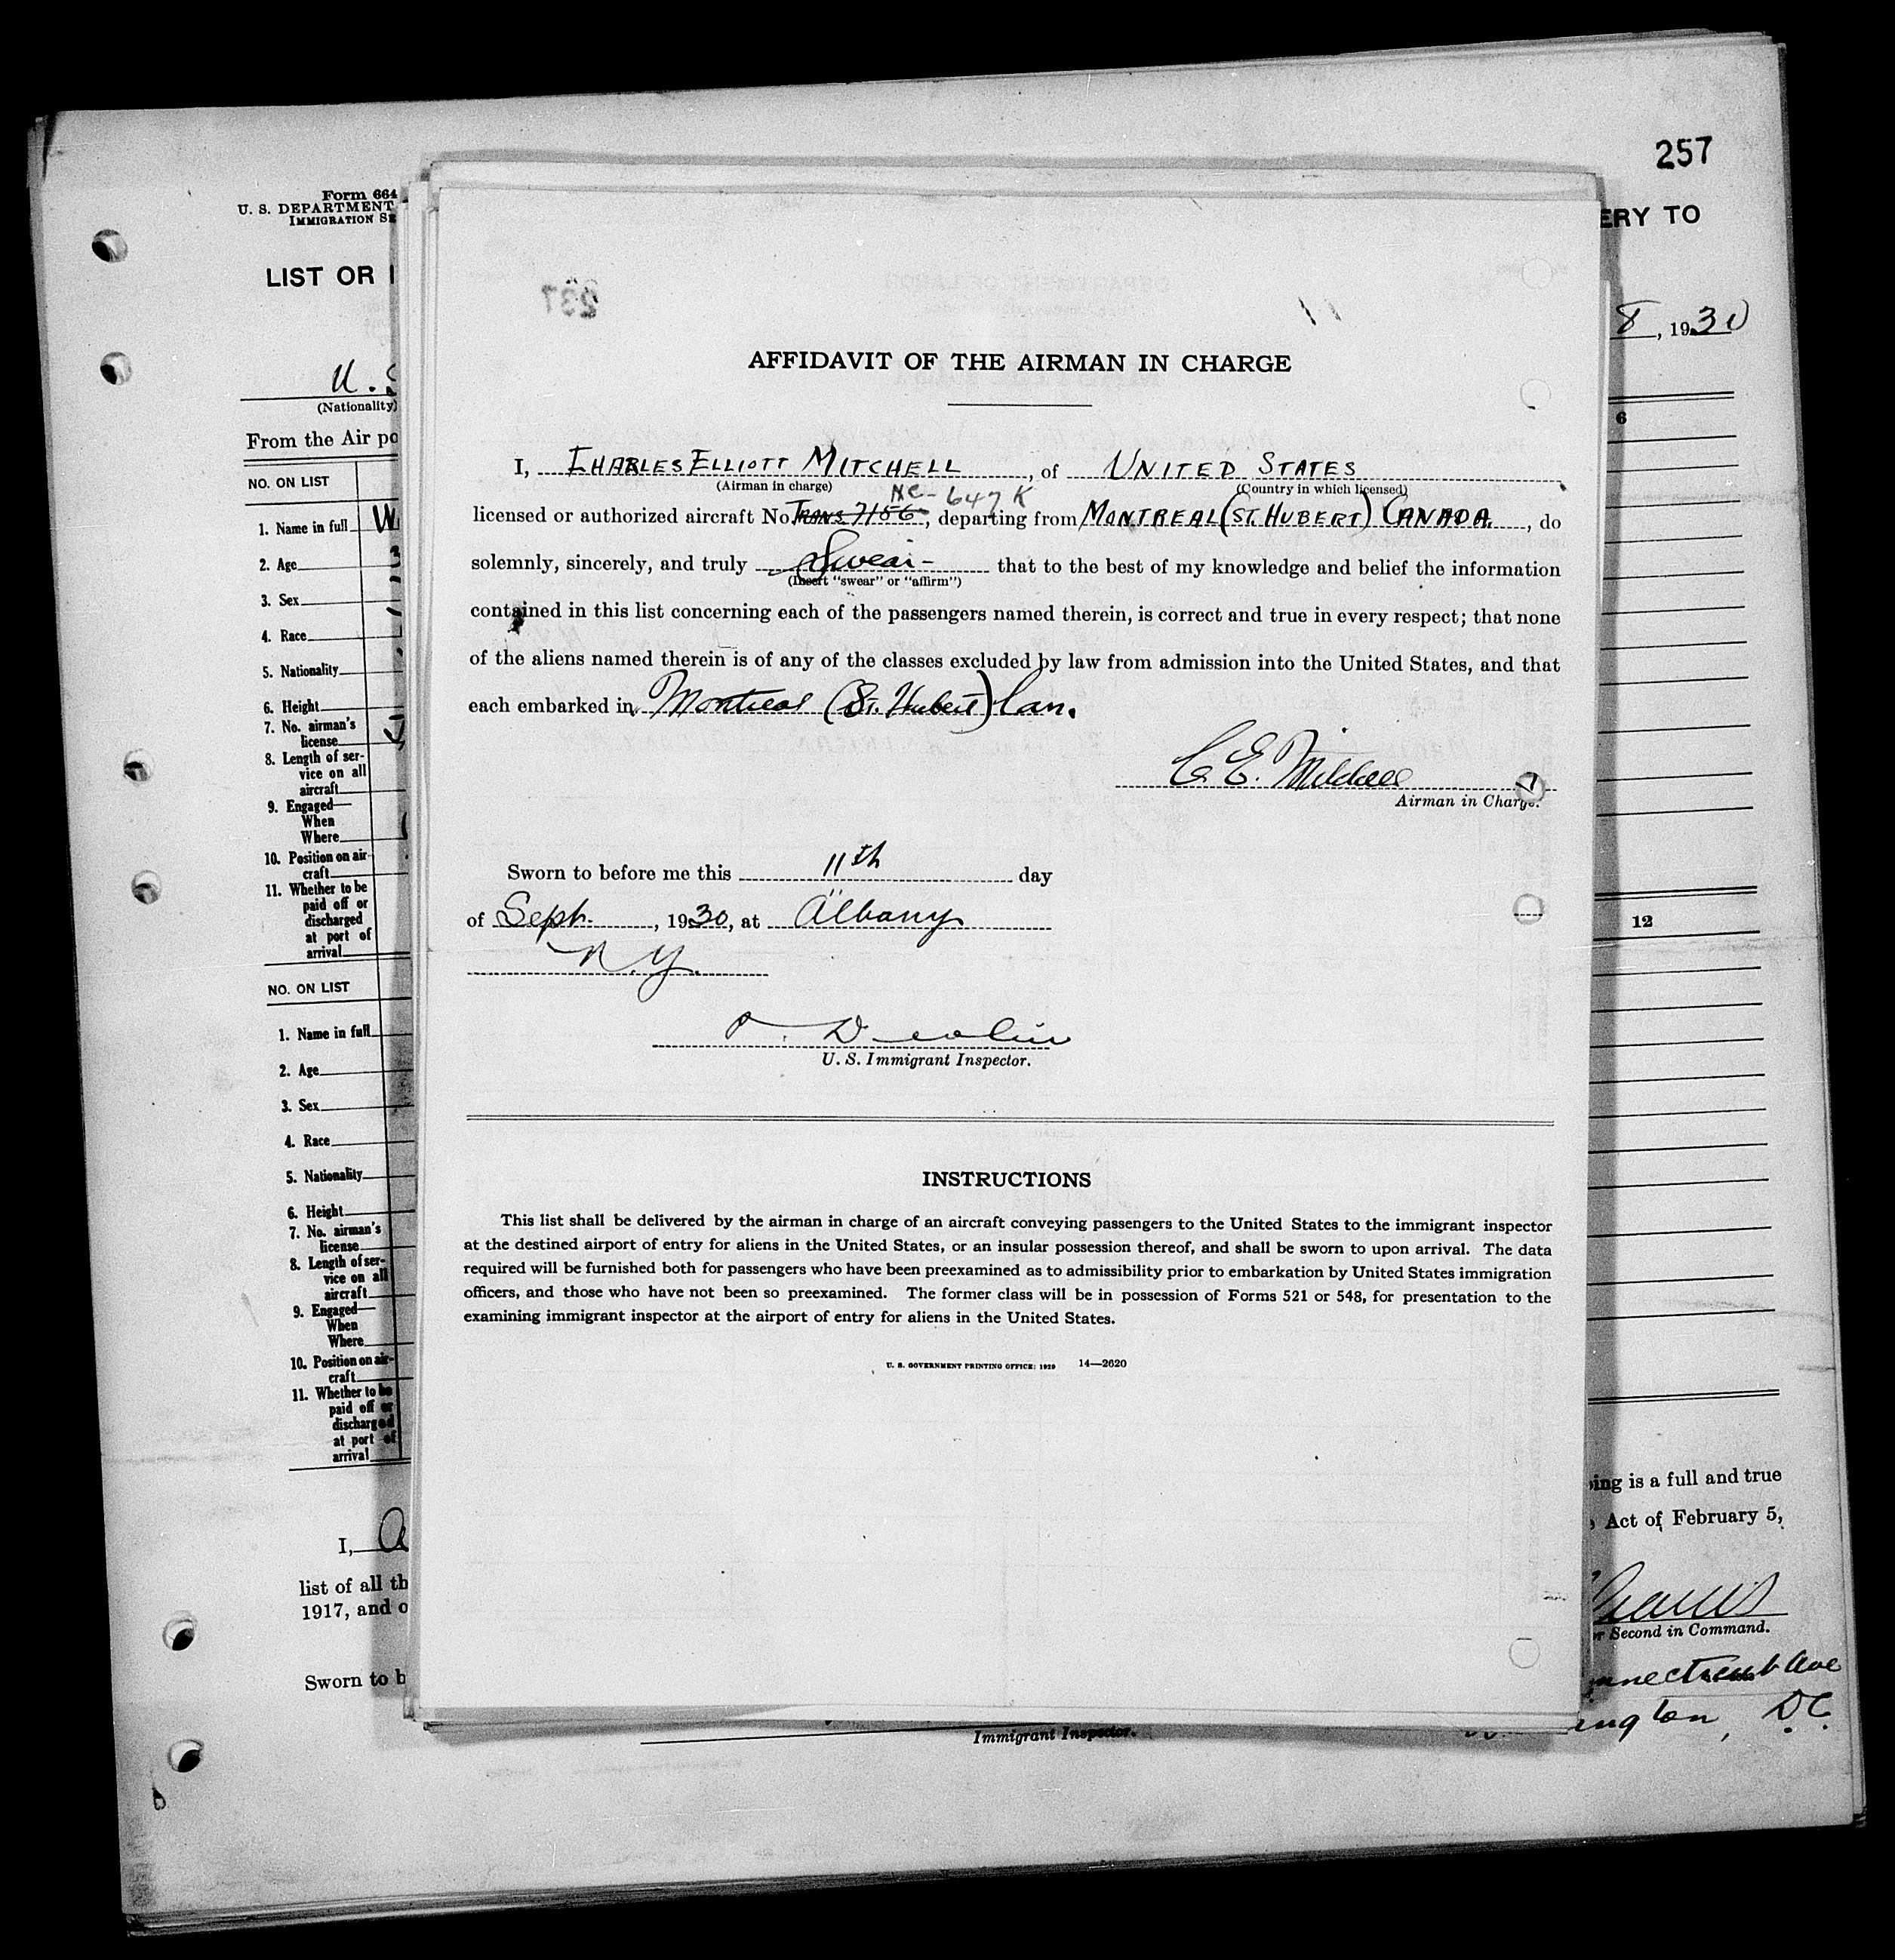 257
Form 664
U. S. DEPARTMENT
IMMIGRATION SE
ERY TO
LIST OR
8, 1930
U. S
(Nationality)
From the Air po
NO. ON LIST
6
1. Name in full W
2. Age 3
3. Sex
4. Race
5. Nationality
6. Height
7. No. airman's
license
8. Length of ser-
vice on all
aircraft
9. Engaged—
When
Where
10. Position on air-
craft
11. Whether to be
paid off or
discharged
at port of
arrival
12
NO. ON LIST
1. Name in full
2. Age
3. Sex
4. Race
5. Nationality
6. Height
7. No. airman's
license
8. Length of ser-
vice on all
aircraft
9. Engaged—
When
Where
10. Position on air-
craft
11. Whether to be
paid off or
discharged
at port of
arrival
I, a
list of all th
1917, and o
Sworn to b
237
AFFIDAVIT OF THE AIRMAN IN CHARGE
I, CHARLES ELLIOTT MITCHELL, of UNITED STATES
(Airman in charge) (Country in which licensed)
NC-647K
licensed or authorized aircraft No. TRANS 7156, departing from MONTREAL (ST. HUBERT) CANADA, do
solemnly, sincerely, and truly Swear- that to the best of my knowledge and belief the information
(Insert "swear" or "affirm")
contained in this list concerning each of the passengers named therein, is correct and true in every respect; that none
of the aliens named therein is of any of the classes excluded by law from admission into the United States, and that
each embarked in Montreal (St. Hubert) Can.
C. E. Mitchell
Airman in Charge.
Sworn to before me this 11th day
of Sept., 1930, at Albany
N.Y.
Devlin
U. S. Immigrant Inspector.
INSTRUCTIONS
This list shall be delivered by the airman in charge of an aircraft conveying passengers to the United States to the immigrant inspector
at the destined airport of entry for aliens in the United States, or an insular possession thereof, and shall be sworn to upon arrival. The data
required will be furnished both for passengers who have been preexamined as to admissibility prior to embarkation by United States immigration
officers, and those who have not been so preexamined. The former class will be in possession of Forms 521 or 548, for presentation to the
examining immigrant inspector at the airport of entry for aliens in the United States.
U. S. GOVERNMENT PRINTING OFFICE: 1929 14—2620
ing is a full and true
Act of February 5,
or Second in Command.
nnecticut Ave
ington, D.C.
Immigrant Inspector.